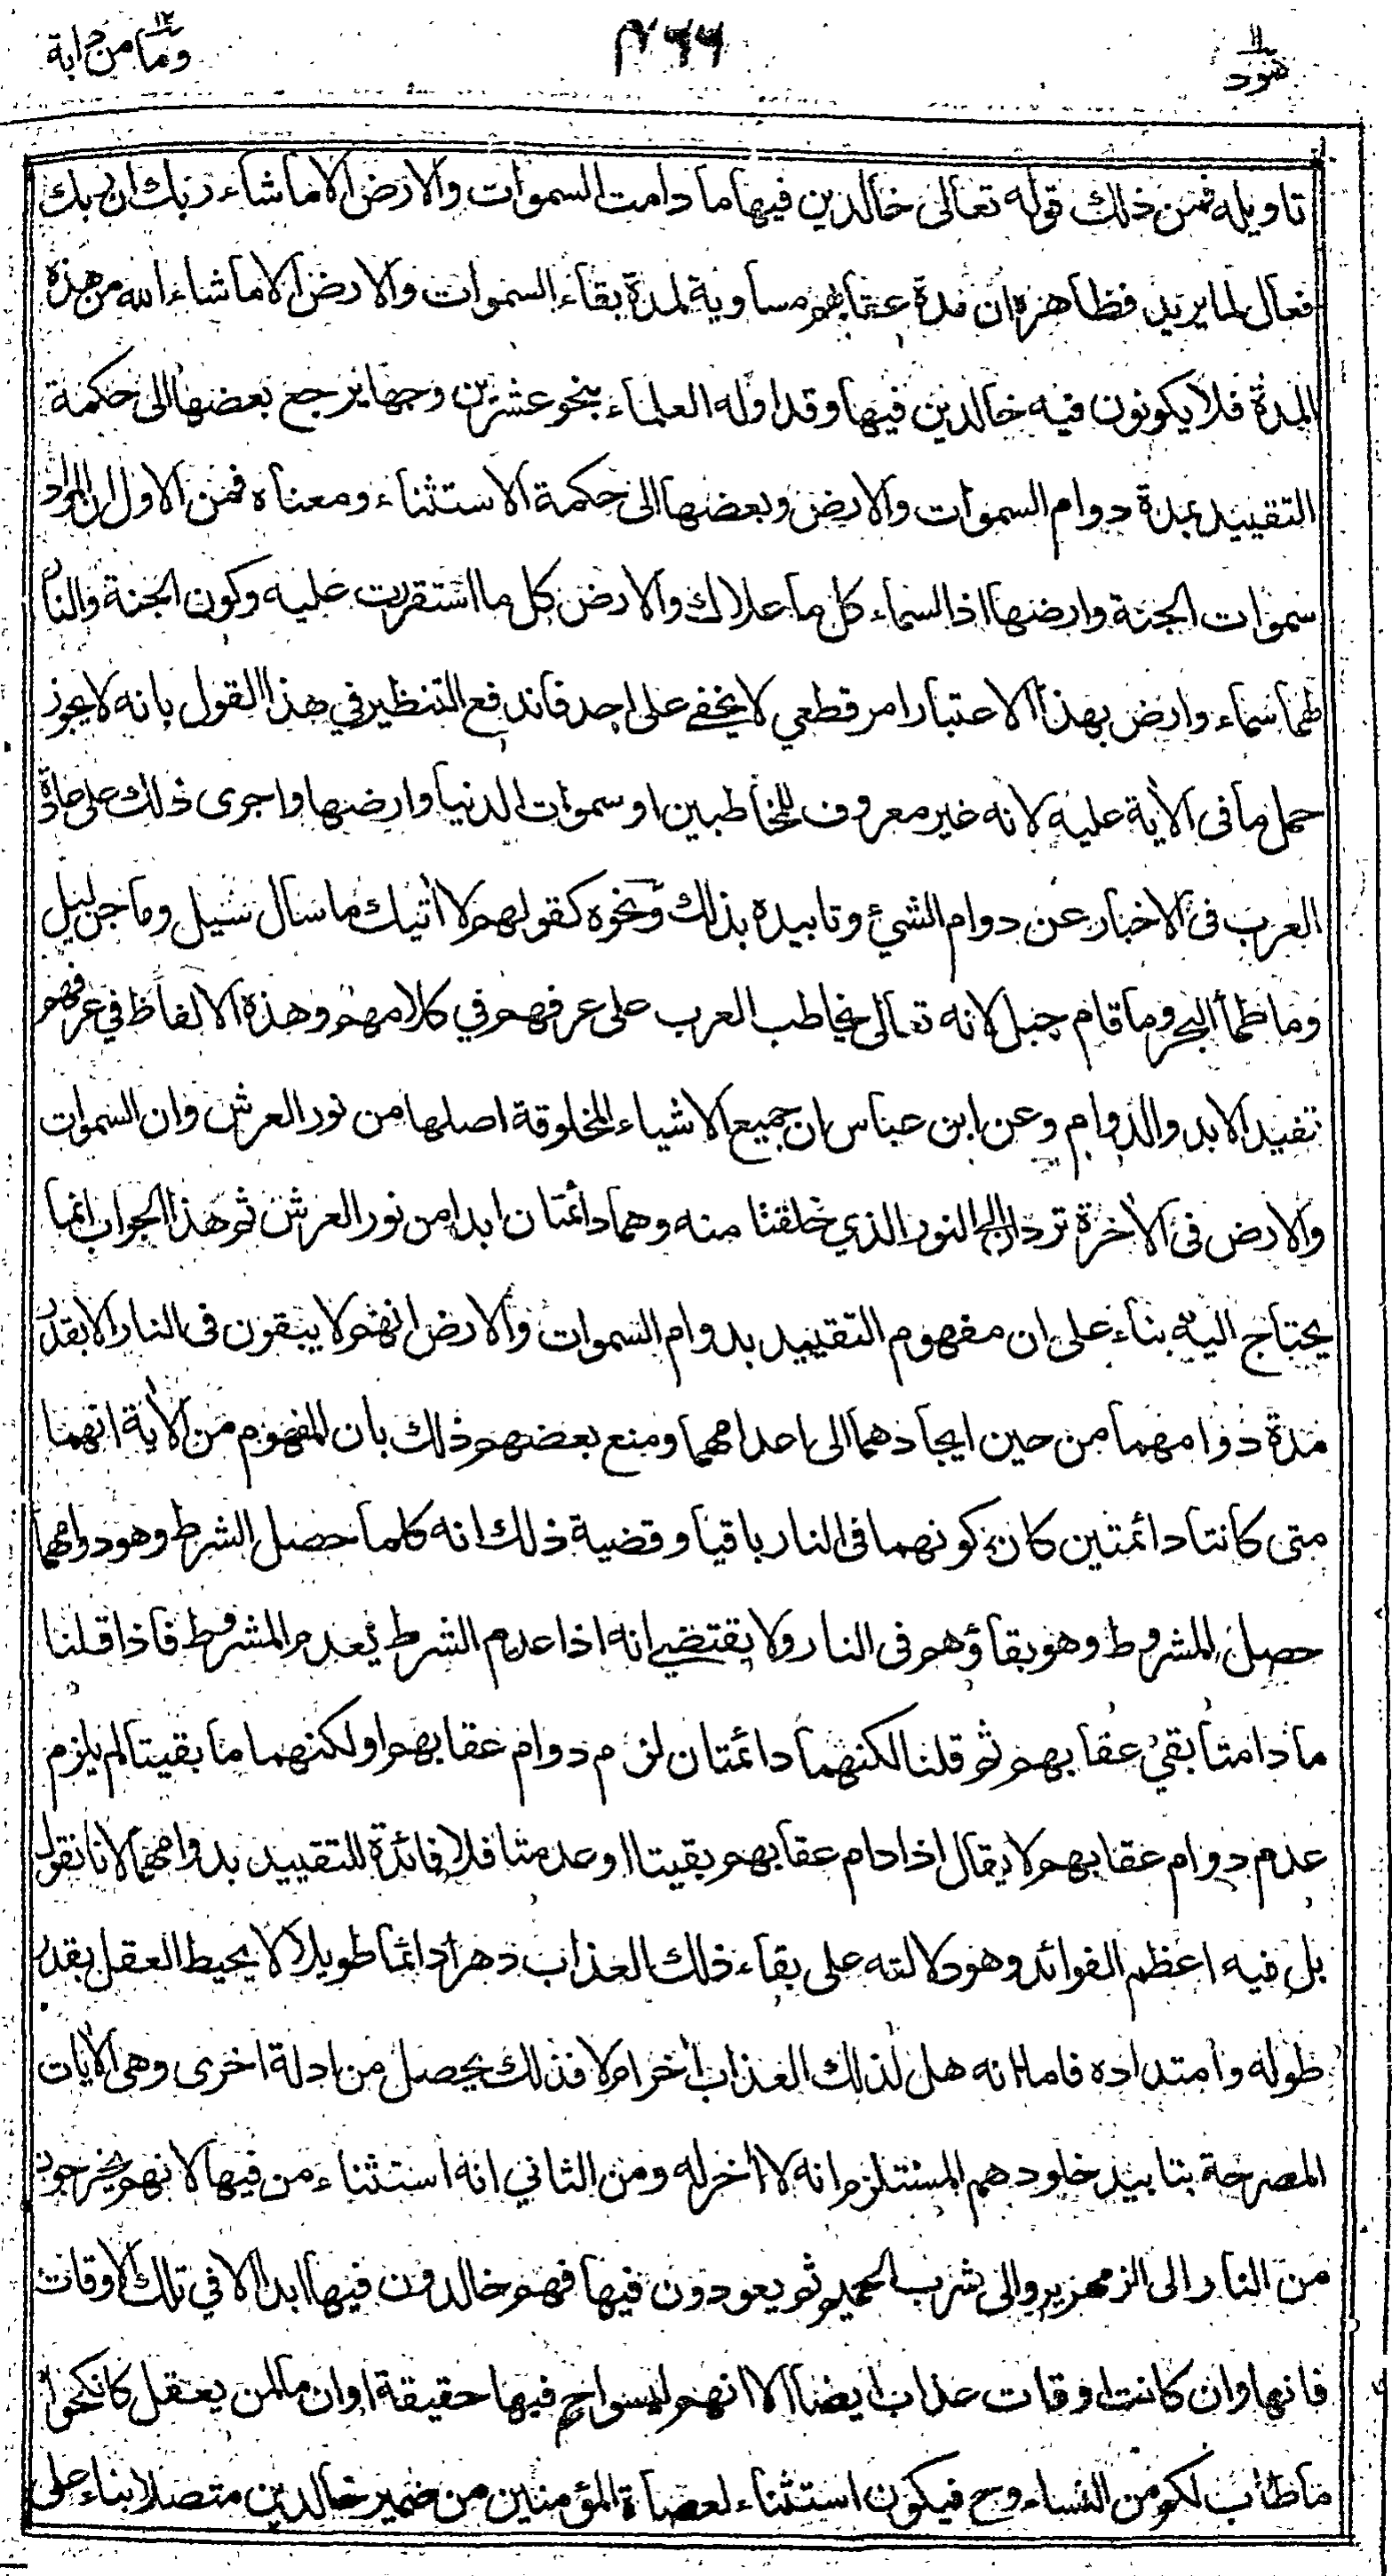 هود ١١
٤٦٦
وما من دابة ١٢
تاويله فمن ذلك قوله تعالى خالدين فيها ما دامت السموات والارض الا ما شاء ربك ان ربك
فعال لما يريد فظاهره ان مدة عقابهم مساوية لمدة بقاء السموات والارض الا ما شاء الله من هذه
المدة فلا يكونون فيه خالدين فيها وقد اوله العلماء بنحو عشرين وجها يرجع بعضها الى حكمة
التقييد بمدة دوام السموات والارض وبعضها الى حكمة الاستثناء ومعناه فمن الاول ان المراد
سموات الجنة وارضها اذ السماء كل ما علاك والارض كل ما استقررت عليه وكون الجنة والنار
لهما سماء وارض بهذا الاعتبار امر قطعي لا يخفى على احد فاندفع التنظير في هذا القول بانه لا يجوز
حمل ما فى الاية عليه لانه غير معروف للمخاطبين او سموات الدنيا وارضها واجرى ذلك على عادة
العرب فى الاخبار عن دوام الشيء وتابيده بذلك ونحوه كقولهم لا اتيك ما سال سيل وما جن ليل
وما طما البحر وما قام جبل لانه تعالى يخاطب العرب على عرفهم في كلامهم وهذه الالفاظ في عرفهم
تفيد الابد والدوام وعن ابن عباس ان جميع الاشياء المخلوقة اصلها من نور العرش وان السموات
والارض فى الاخرة تردان الى النور الذي خلقتا منه وهما دائمتان ابدا من نور العرش ثم هذا الجواب انما
يحتاج اليه بناء على ان مفهوم التقييد بدوام السموات والارض انهم لا يبقون فى النار الا بقدر
مدة دوامهما من حين ايجادهما الى اعدامهما ومنع بعضهم ذلك بان المفهوم من الاية انهما
متى كانتا دائمتين كان كونهما فى النار باقيا وقضية ذلك انه كلما حصل الشرط وهو دوامهما
حصل المشروط وهو بقاؤهم فى النار ولا يقتضي انه اذا عدم الشرط يعدم المشروط فاذا قلنا
ما دامتا بقي عقابهم ثم قلنا لكنهما دائمتان لزم دوام عقابهم او لكنهما ما بقيتا لم يلزم
عدم دوام عقابهم لا يقال اذا دام عقابهم بقيتا او عدمتا فلا فائدة للتقييد بدوامهما لانا نقول
بل فيه اعظم الفوائد وهو دلالته على بقاء ذلك العذاب دهرا دائما طويلا لا يحيط العقل بقدر
طوله وامتداده فاما انه هل لذلك العذاب اخر ام لا فذلك يحصل من ادلة اخرى وهى الايات
المصرحة بتابيد خلودهم المستلزم انه لا اخر له ومن الثاني انه استثناء من فيها لانهم يخرجون
من النار الى الزمهرير والى شرب الحميم ثم يعودون فيها فهم خالدون فيها ابدا الا في تلك الاوقات
فانها وان كانت اوقات عذاب ايضا الا انهم ليسوا ح فيها حقيقة او ان ما لمن يعقل كانكحوا
ما طاب لكم من النساء وح فيكون استثناء لعصاة المؤمنين من ضمير خالدين متصلا بناء على